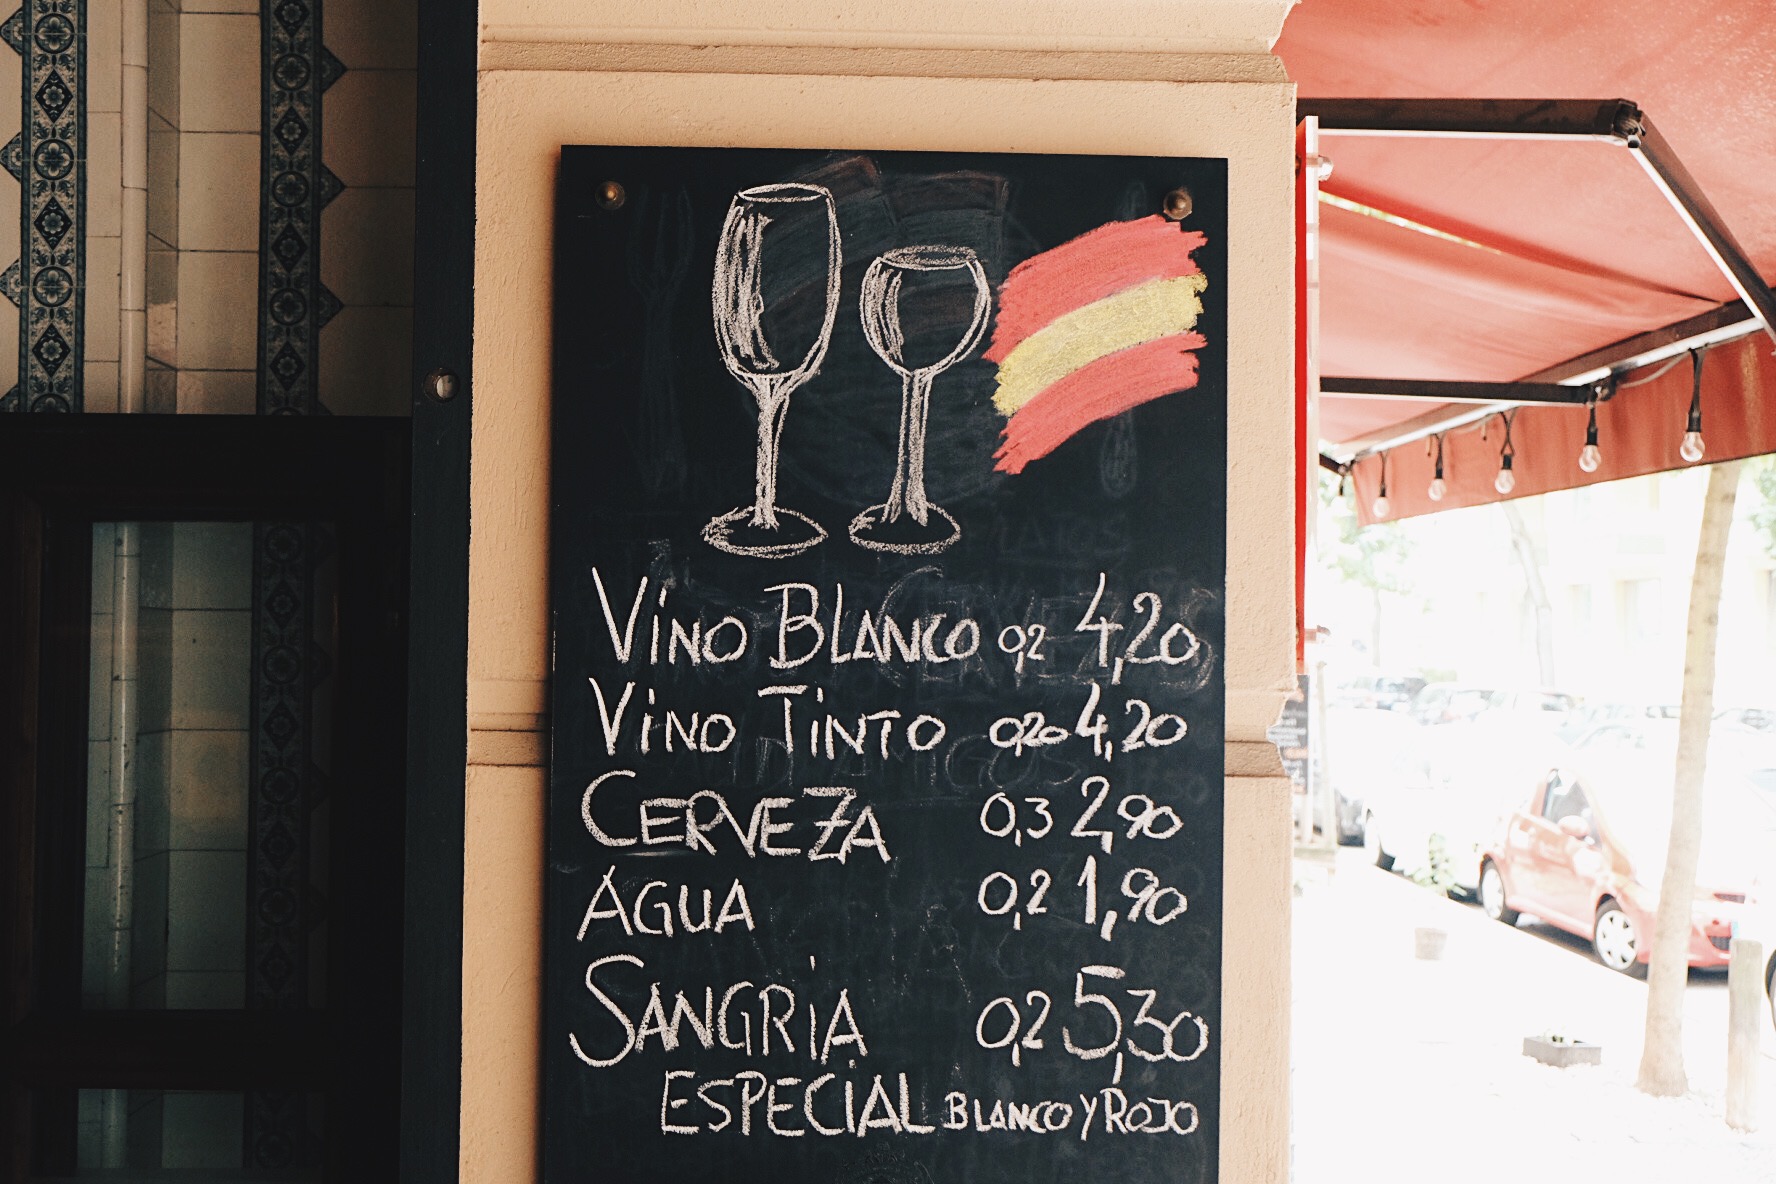 Vino BLANCO 0,2 4,20
Vino TiNTO 0,20 4,20
CERVEZA 0,3 2,90
AGUA 0,2 1,90
SANGRiA 0,2 5,30
ESPECiAL BLANCO Y ROJO